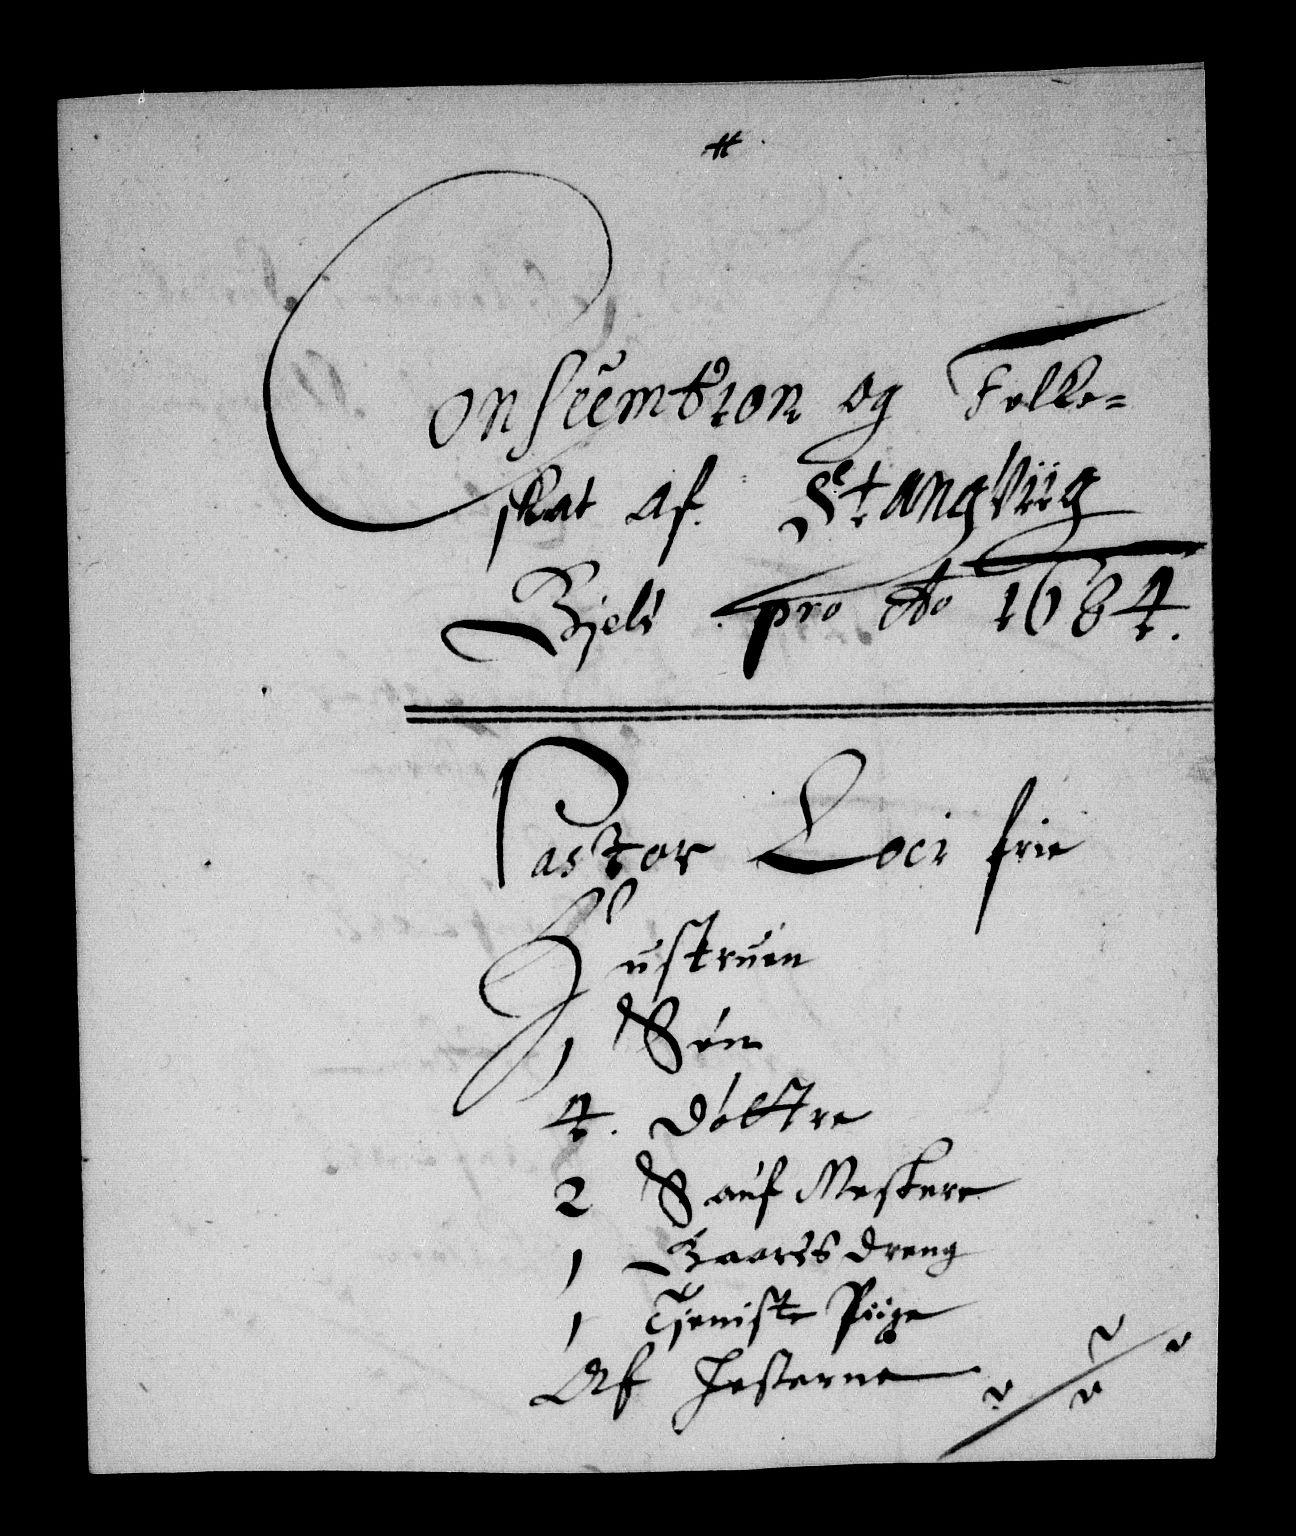 Consumtion og Folke=
skat af Stangviig
Gield pro Ao 1684.
Pastor Loci frie
Hustruen
1 Søn
4. Døttre
2 Sauf Meskere
1 Gaards dreng
1 Tjeniste Piige
Af Hesterne